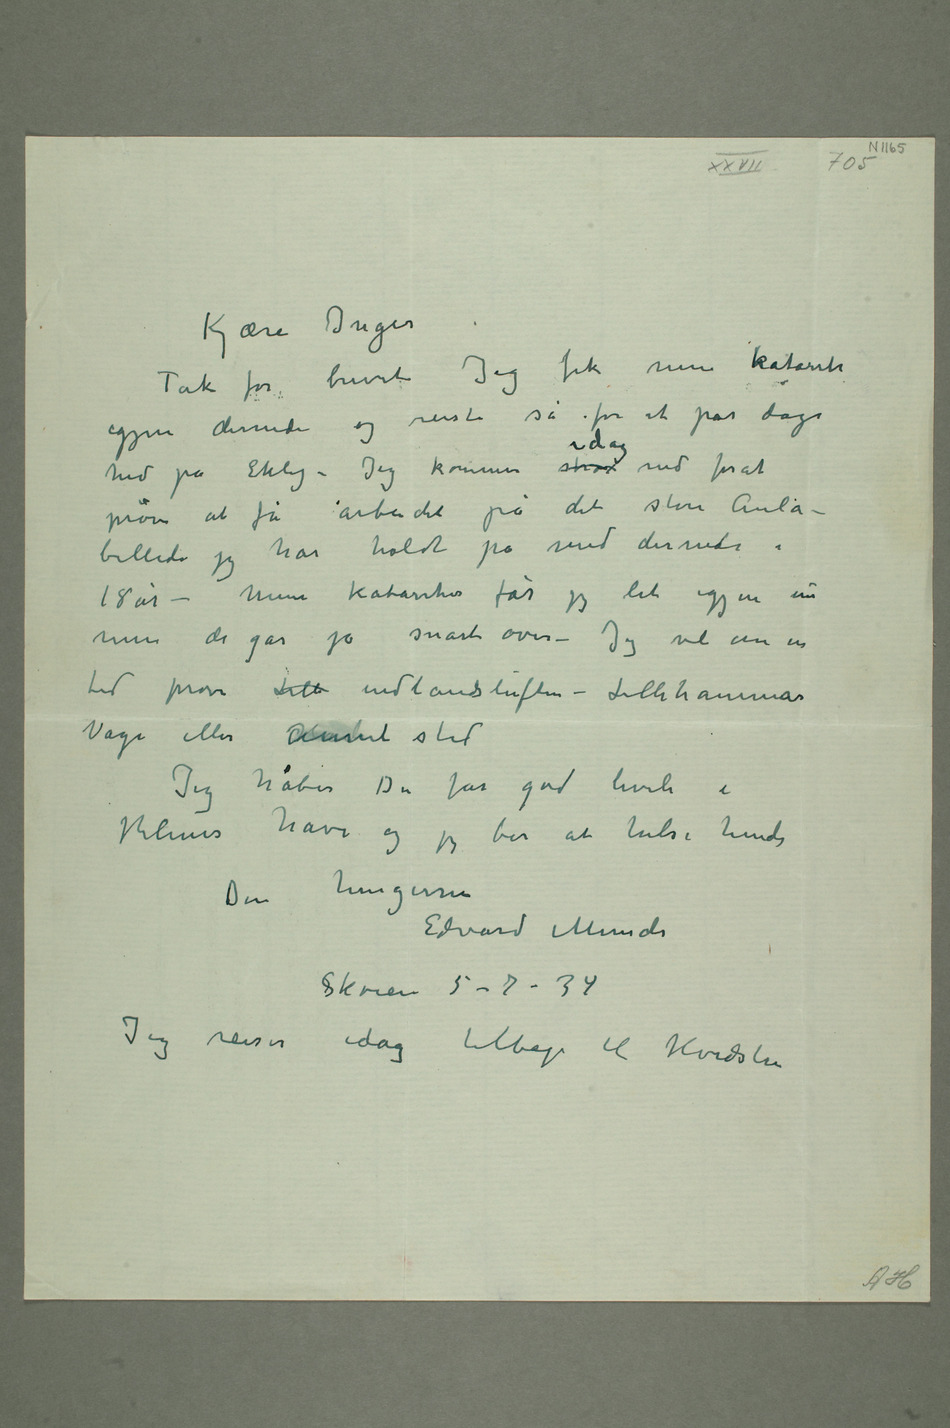 N1165
XXVII 705
Kjære Inger
Tak for brevet Jeg fik min katarrh
igjen dernede og reiste så for et par dage
hid på Ekely – Jeg kommer strax idag ned forat
prøve at få arbeidet på det store Aula-
billede jeg har holdt på med dernede i
18 år – Mine katarrher får jeg let igjen nu
men de går jo snart over – Jeg vil om en
tid prøve Lille indlandsluften – Lillehammer
Vage eller Annet sted
Jeg håber Du får god hvile i
Helmers have og jeg ber at hilse hende
Din hengivne
Edvard Munch
Skøien 5 – 7 – 34
Jeg reiser idag tilbage til Hvidsten
AH